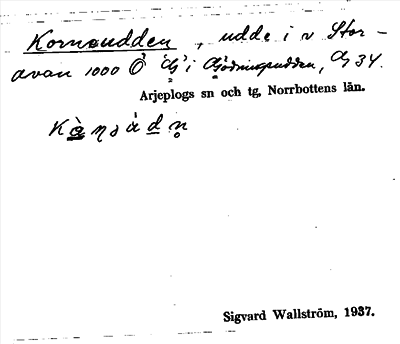 Kornsudden, udde i v Stor-
avan 1000 Ö "G" i Gödningsudden, G 34.
Arjeplogs sn och tg, Norrbottens län.
Sigvard Wallström, 1937.